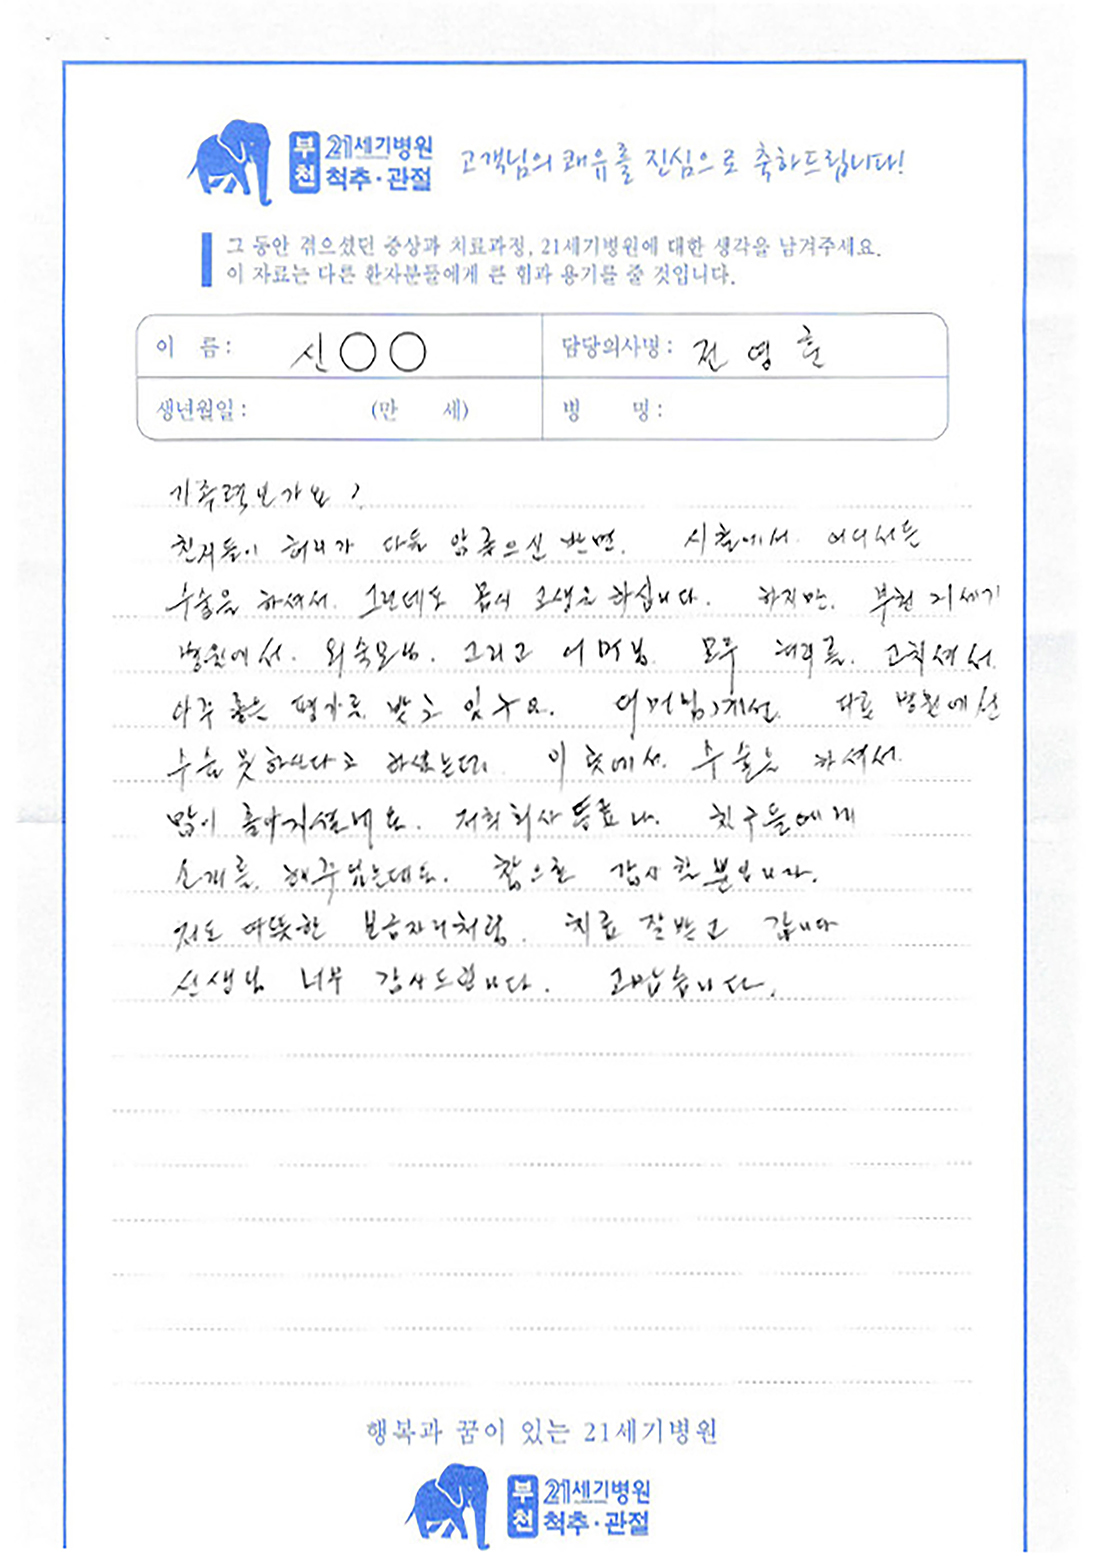 부천 21세기병원 척추·관절
고객님의 쾌유를 진심으로 축하드립니다!
그 동안 겪으셨던 증상과 치료과정, 21세기병원에 대한 생각을 남겨주세요.
이 자료는 다른 환자분들에게 큰 힘과 용기를 줄 것입니다.
이 름 : 신○○ 담당의사명 : 전영훈
생년월일 : (만 세) 병 명 :
가족력인가요?
친지들이 허리가 다들 안좋으신 반면. 시골에서. 어디서든
수술을 하셔서. 그런데도 몹시 고생을 하십니다. 하지만. 부천 21세기
병원에서. 외숙모님. 그리고 어머님. 모두 허리를. 고치셔서
아주 좋은 평가를 받고 있구요. 어머님께선. 다른 병원에선
수술 못하신다고 하셨는데. 이 곳에서. 수술을 하셔서.
많이 좋아지셨네요. 저희 회사 동료나. 친구들에게
소개를. 해주었는데도. 참으로 감사할 분입니다.
저도 따뜻한 보금자리처럼. 치료 잘받고 갑니다
선생님 너무 감사드립니다. 고맙습니다.
행복과 꿈이 있는 21세기병원
부천 21세기병원 척추·관절